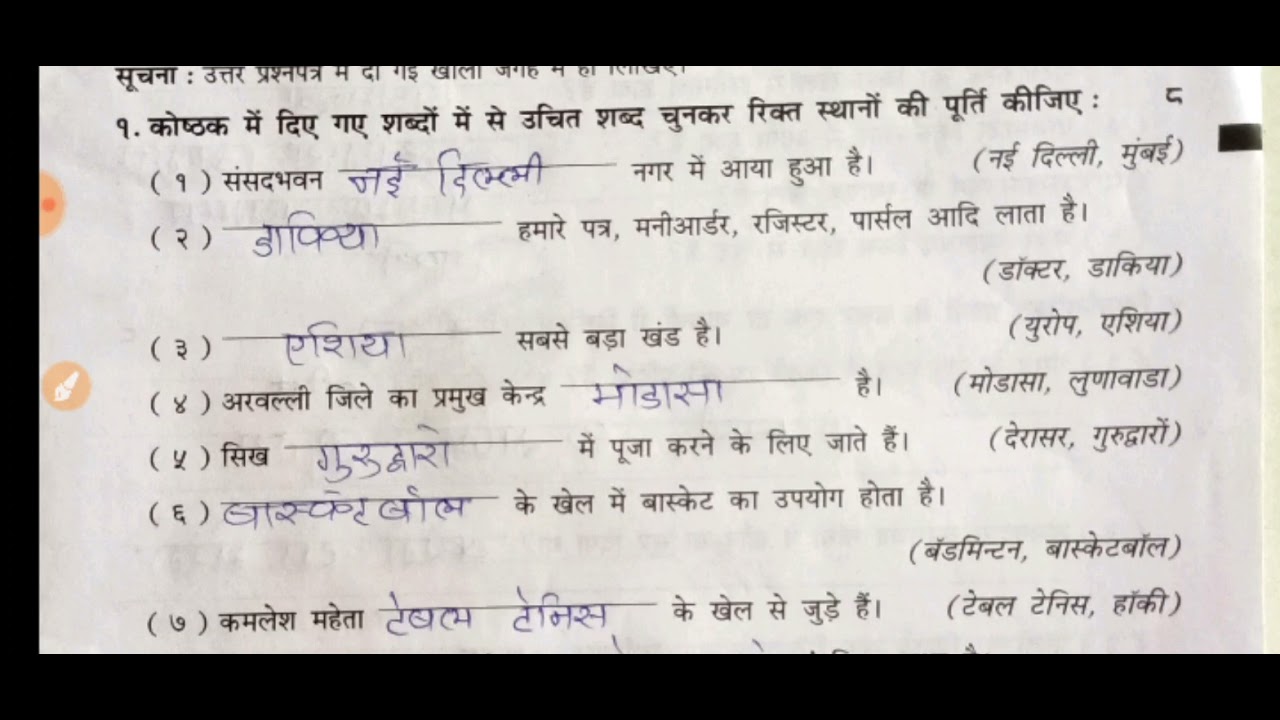 सूचना : उत्तर प्रश्नपत्र में दी गई खाली जगह में ही लिखिए।
१. कोष्ठक में दिए गए शब्दों में से उचित शब्द चुनकर रिक्त स्थानों की पूर्ति कीजिए : ८
(१) संसदभवन नई दिल्ली नगर में आया हुआ है। (नई दिल्ली, मुंबई)
(२) डाकिया हमारे पत्र, मनीआर्डर, रजिस्टर, पार्सल आदि लाता है।
(डॉक्टर, डाकिया)
(३) एशिया सबसे बड़ा खंड है। (युरोप, एशिया)
(४) अरवल्ली जिले का प्रमुख केन्द्र मोडासा है। (मोडासा, लुणावाडा)
(५) सिख गुरुद्वारो में पूजा करने के लिए जाते हैं। (देरासर, गुरुद्वारों)
(६) बास्केटबोल के खेल में बास्केट का उपयोग होता है।
(बॅडमिन्टन, बास्केटबॉल)
(७) कमलेश महेता टेबल टेनिस के खेल से जुड़े हैं। (टेबल टेनिस, हॉकी)